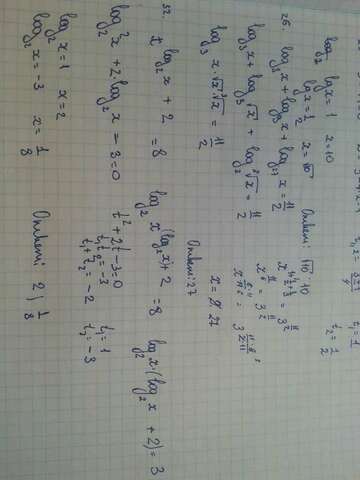 t₁ = 1
t₂ = 1/2
lg x = 1 x = 10
lg x = 1/2 x = √10
Ответ: √10; 10
26. log₃ x + log₉ x + log₂₇ x = 11/2
log₃ x + log₃ √x + log₃ ∛x = 11/2
log₃ x · √x · ∛x = 11/2
x^(1+1/2+1/3) = 3^(11/2)
x^(11/6) = 3^(11/2)
x = 27
Ответ: 27
32. x^(log₂ x + 2) = 8
log₂ x^(log₂ x) + 2 = 8
log₂ x · (log₂ x + 2) = 3
log₂² x + 2 log₂ x - 3 = 0
t² + 2t - 3 = 0
t₁ t₂ = -3
t₁ + t₂ = -2
t₁ = 1
t₂ = -3
log₂ x = 1 x = 2
log₂ x = -3 x = 1/8
Ответ: 2; 1/8